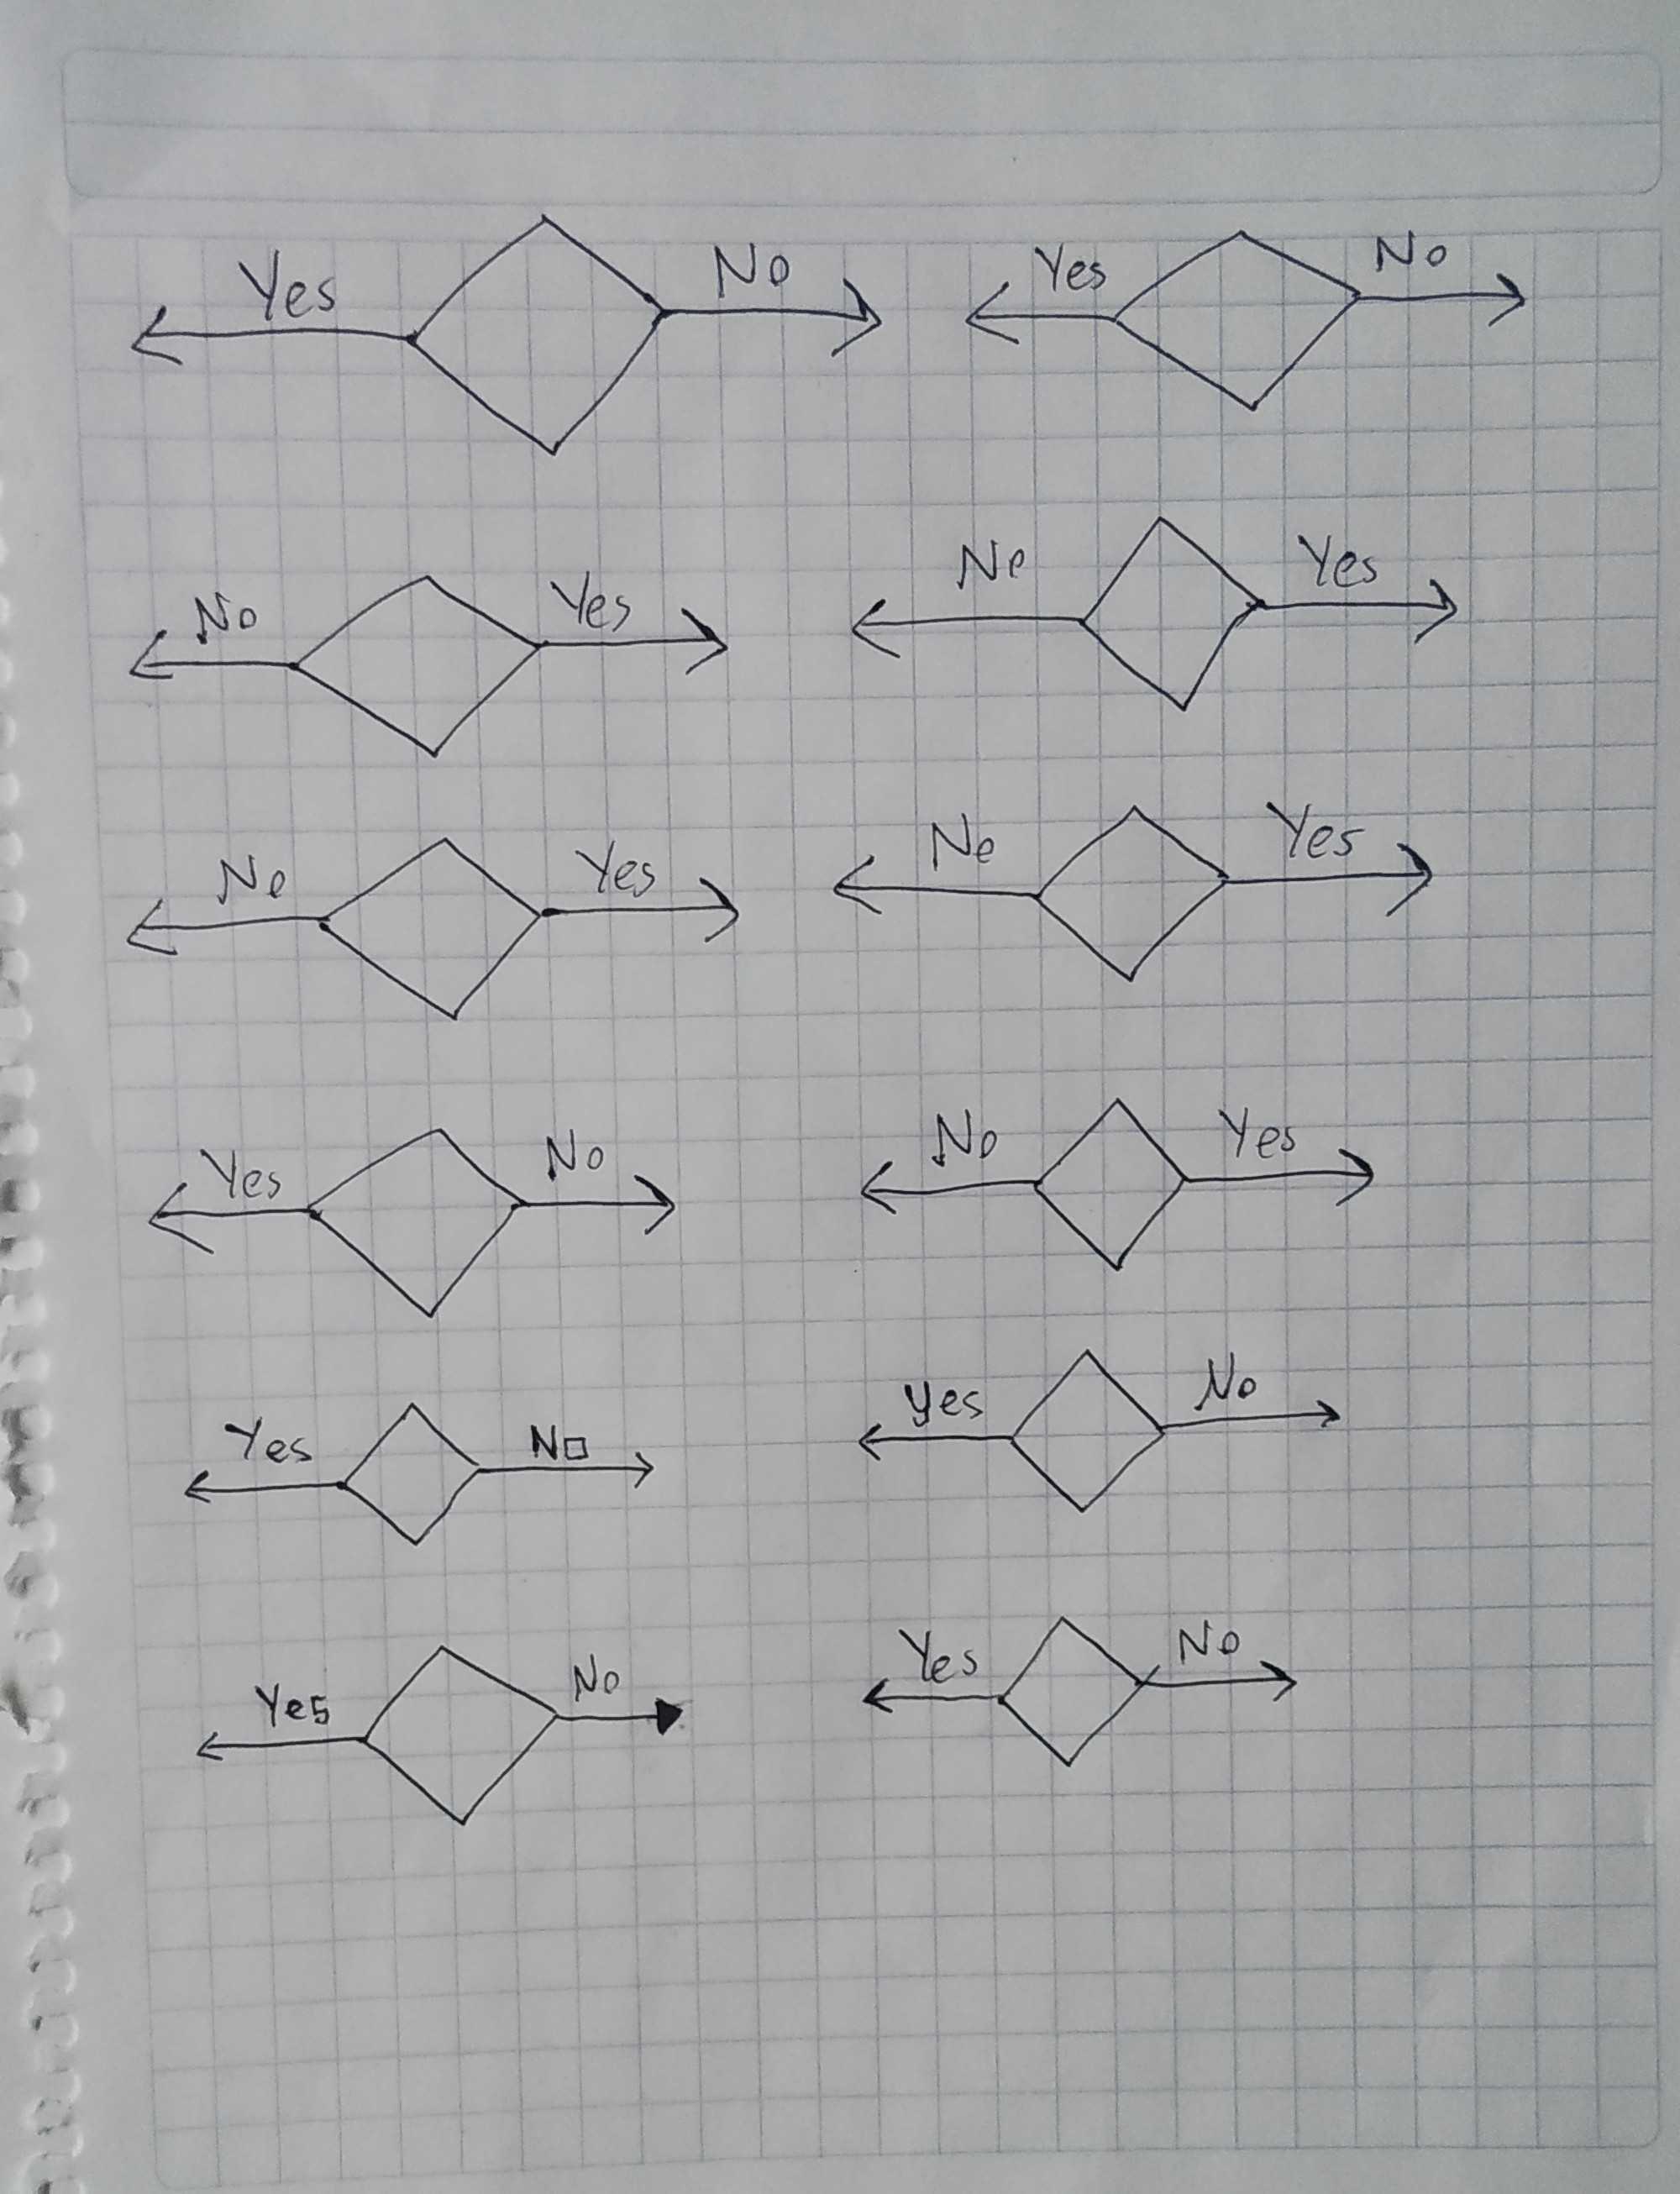 Yes No Yes No
No Yes No Yes
No Yes No Yes
Yes No No Yes
Yes No yes No
Yes No Yes No